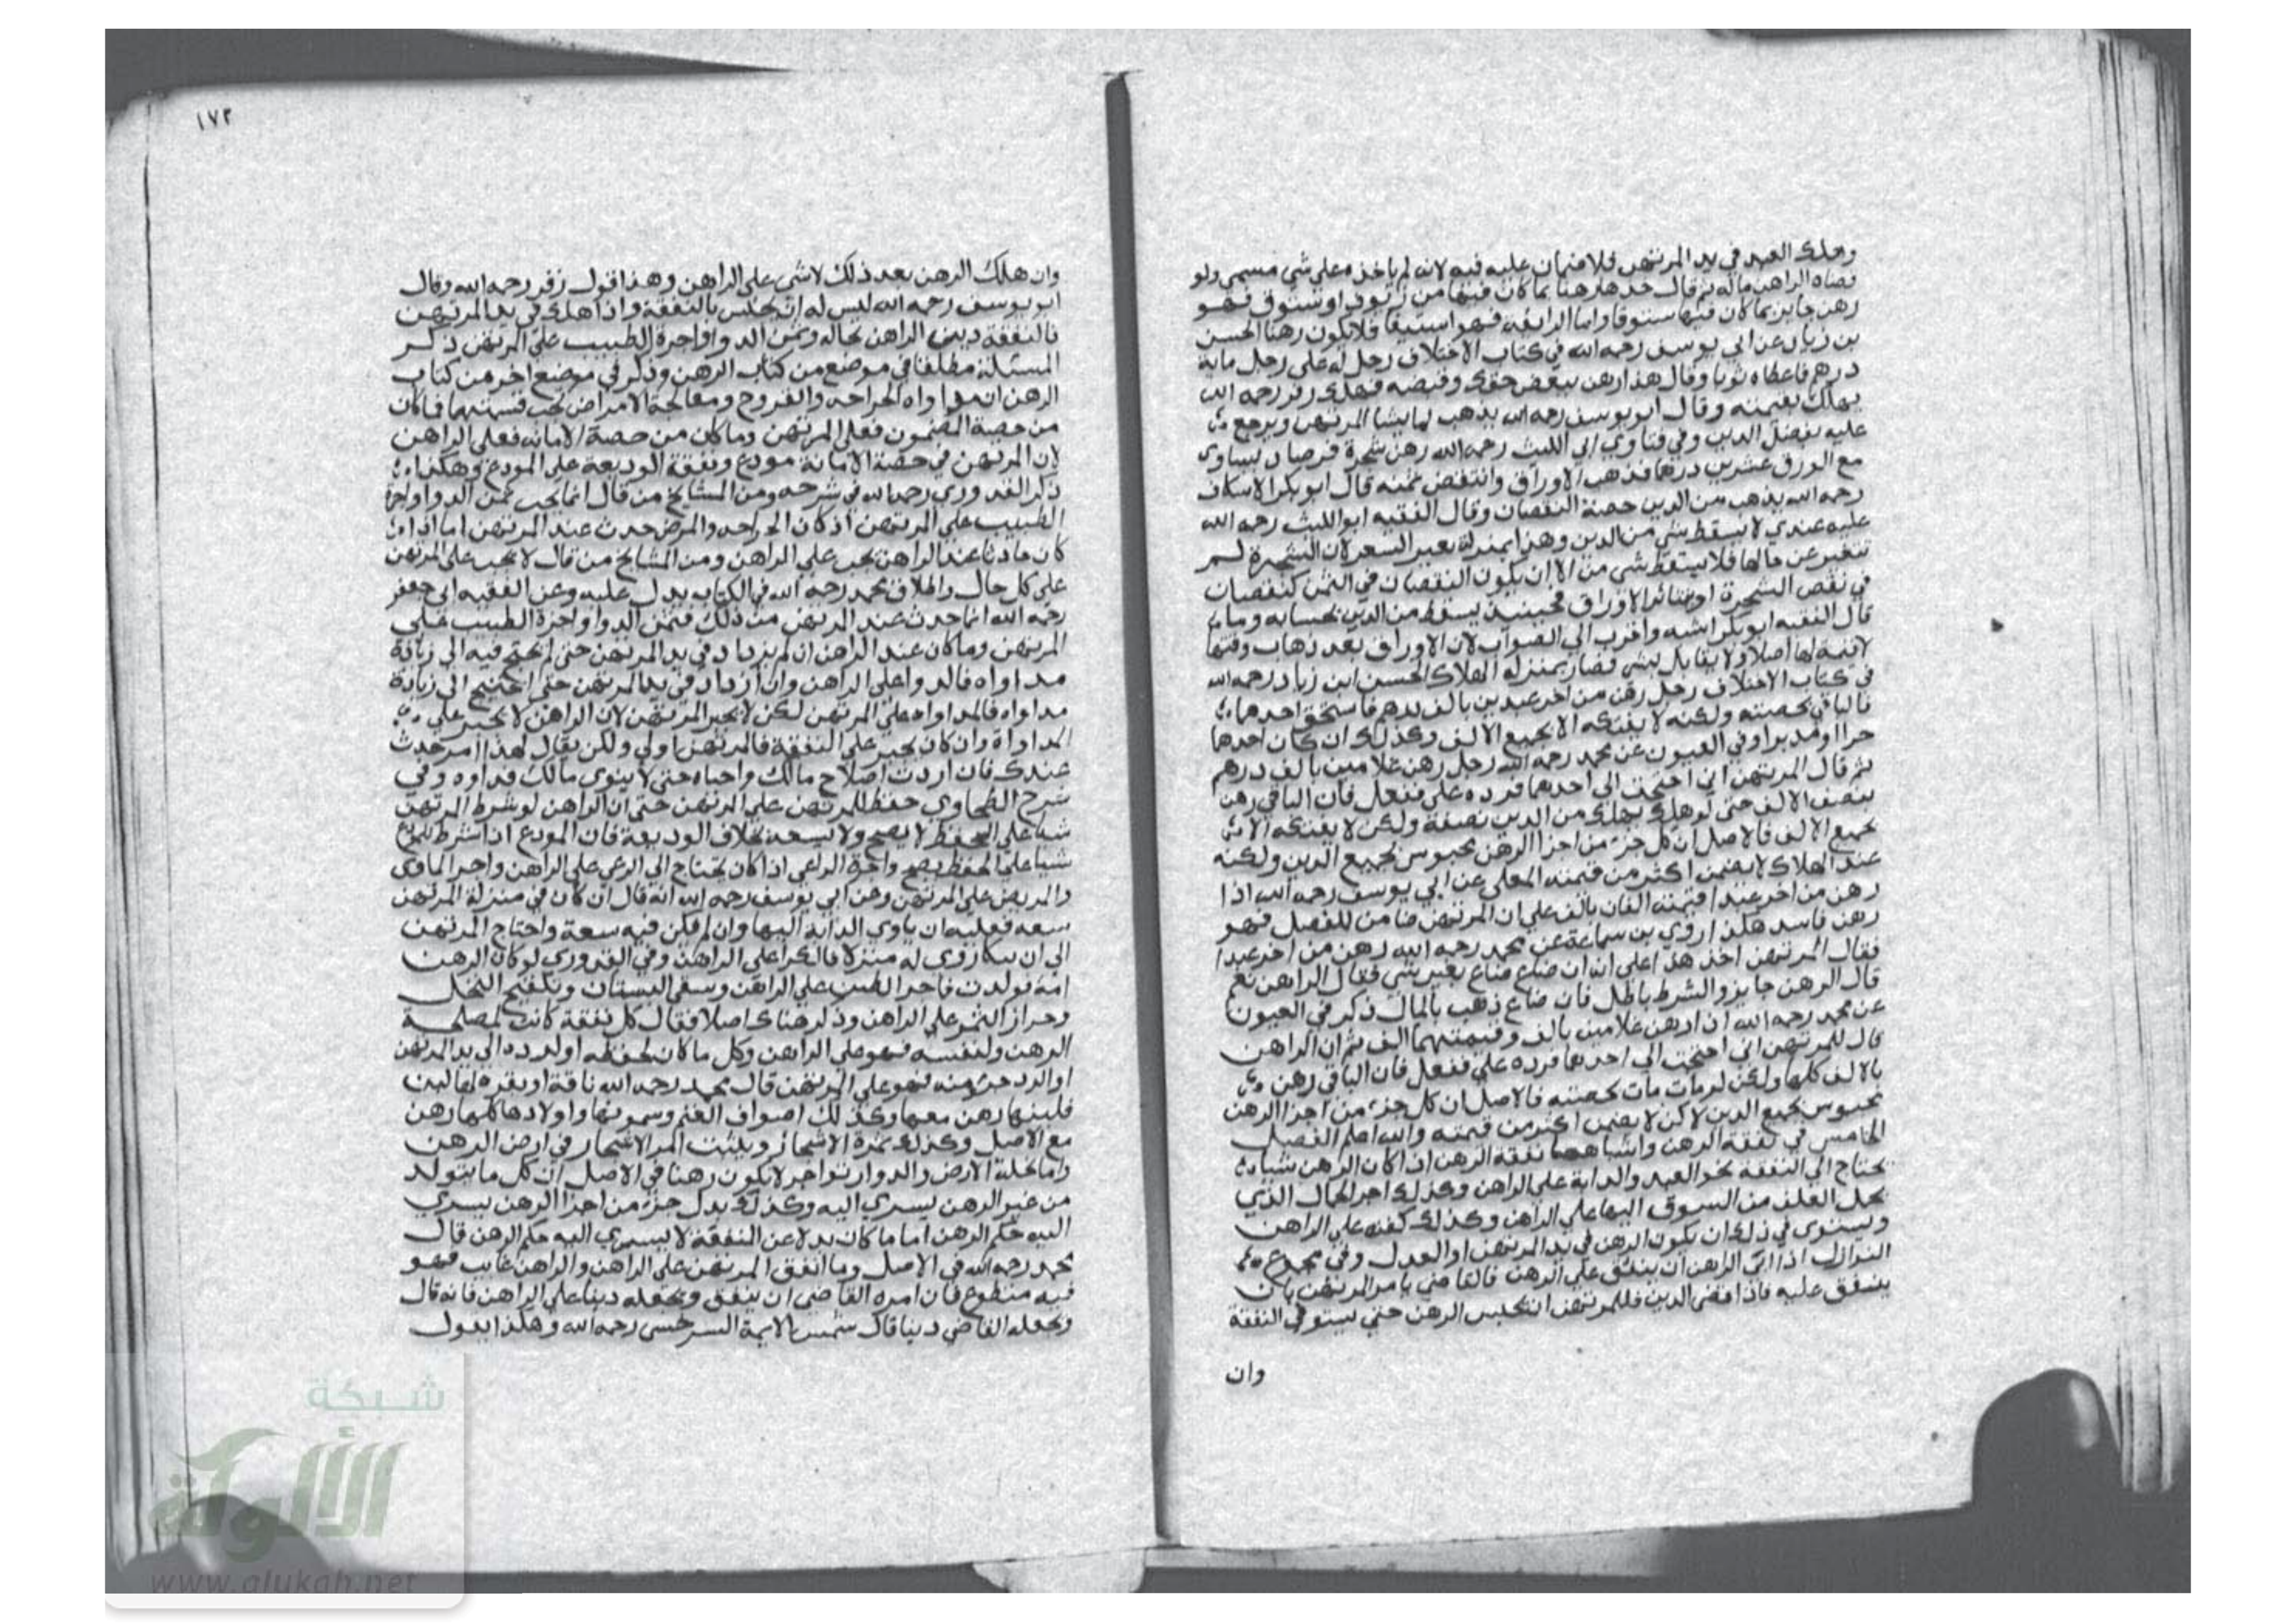 وهلك العبد في يد المرتهن فلا ضمان عليه فيه لانه لم ياخذه علي شي مسمي ولو
قضاه الراهن ماله ثم قال خذها رهنا بما كان فيها من زيوف او ستوق فهو
رهن جايز بما كان فيها ستوقا واما الزائفه فهو استيفا فلا يكون رهنا الحسن
بن زياد عن ابي يوسف رحمه الله في كتاب الاختلاف رجل له على رجل ماية
درهم فاعطاه ثوبا وقال هذا رهن ببعض حقك وقبضه فهلك زفر رحمه الله
يهلك بقيمته وقال ابو يوسف رحمه الله يذهب لما يشا المرتهن ويرجع
عليه بفضل الدين وفي فتاوي ابي الليث رحمه الله رهن شجرة فرصاد يساوي
مع الورق عشرين درهما فذهب الاوراق وانتقض ثمنه قال ابو بكر الاسكاف
رحمه الله يذهب من الدين حصة النقصان وقال الفقيه ابو الليث رحمه الله
عليه عندي لا يسقط شي من الدين وهذا بمنزلة تغير السعر لان الشجرة لم
تتغير عن حالها فلا يسقط شي من الا ان يكون النقصان في الثمن كنقصان
في نقص الشجرة او تناثر الاوراق فحينيذ يسقط من الدين بحسابه وما
قال الفقيه ابو بكر اشبه واقرب الي الصواب لان الاوراق بعد ذهاب وقتها
لا قيمة لها اصلا ولا يقابل بشي فصار بمنزلة الهلاك الحسن ابن زياد رحمه الله
في كتاب الاختلاف رجل رهن من اخر عبدين بالف درهم فاستحق احدهما
فالباقي بحصته ولكنه لا يفتكه الا بجميع الالف وكذلك ان كان احدهما
حرا او مدبرا وفي العيون عن محمد رحمه الله رجل رهن غلامين بالف درهم
ثم قال المرتهن اني احتجت الي احدهما فرده علي ففعل فان الباقي رهن
بنصف الالف حتى لو هلك يهلك من الدين نصفه ولكن لا يفتكه الا
بجميع الالف فالاصل ان كل جزء من اجزا الرهن محبوس بجميع الدين ولكنه
عند الهلاك لا يضمن اكثر من قيمته المعلي عن ابي يوسف رحمه الله اذا
رهن من اخر عبدا قيمته الفان بالف علي ان المرتهن ضامن للفضل فهو
رهن فاسد هكذا روي بن سماعة عن محمد رحمه الله رهن من اخر عبدا
فقال المرتهن اخذ هذا علي انه ان ضاع ضاع بغير شي فقال الراهن نعم
قال الرهن جايز والشرط باطل فان ضاع ذهب بالمال ذكر في العيون
عن محمد رحمه الله اذا رهن غلامين بالف وقيمتهما الف ثم ان الراهن
قال للمرتهن اني احتجت الي احدهما فرده علي ففعل فان الباقي رهن
بالالف كلها ولكن لو مات مات بحصته فالاصل ان كل جزء من اجزا الرهن
محبوس بجميع الدين لا كن لا يضمن اكثر من قيمته والله اعلم الفصل
الخامس في نفقة الرهن واشباهها نفقة الرهن اذا كان الرهن شيا
يحتاج الي النفقة نحو العبد والدابة علي الراهن وكذلك اجر الحمال الذي
يحمل العلف من السوق اليها علي الراهن وكذلك كفنه علي الراهن
ويستوي في ذلك ان يكون الرهن في يد المرتهن او العدل وفي مجموع
النوازل اذا ابي الراهن ان ينفق علي الرهن فالقاضي يامر المرتهن بان
ينفق عليه فاذا قضي الدين فللمرتهن ان يحبس الرهن حتي يستوفي النفقة
وان
١٧٢
وان هلك الرهن بعد ذلك لاشي علي الراهن وهذا قول زفر رحمه الله وقال
ابو يوسف رحمه الله ليس له ان يحبس بالنفقة واذا هلك في يد المرتهن
فالنفقة دين الراهن بحاله وثمن الدوا واجرة الطبيب علي المرتهن ذكر
المسئلة مطلقا في موضع من كتاب الرهن وذكر في موضع اخر من كتاب
الرهن ان مداواه الجراحه والقروح ومعالجة الامراض يجب قسمتهما فما كان
من حصة المضمون فعلي المرتهن وما كان من حصة الامانه فعلي الراهن
لان المرتهن في حصة الامانة مودع ونفقة الوديعة علي المودع وهكذا
ذكر القدوري رحمه الله في شرحه ومن المشايخ من قال انما يجب ثمن الدوا واجرة
الطبيب علي المرتهن اذ كان الجراحه والمرض حدث عند المرتهن اما اذا
كان حادثا عند الراهن يجب علي الراهن ومن المشايخ من قال لا يجب علي المرتهن
علي كل حال واطلاق محمد رحمه الله في الكتاب يدل عليه وعن الفقيه ابي جعفر
رحمه الله انما حدث عند المرتهن من ذلك فثمن الدوا واجرة الطبيب علي
المرتهن وما كان عند الراهن ان لم يزداد في يد المرتهن حتي لم يحتج فيه الي زيادة
مداواه فالدوا علي الراهن وان ازداد في يد المرتهن حتي احتيج الي زيادة
مداواه فالمداواه علي المرتهن لكن لا يجبر المرتهن لان الراهن لا يجبر علي
المداواة وان كان يجبر علي النفقة فالمرتهن اولي ولكن يقال لهذا امر حدث
عندك فان اردت اصلاح مالك واحياه حتي لا يتوي مالك فداوه وفي
شرح الطحاوي حفظ المرتهن علي المرتهن حتي ان الراهن لو شرط المرتهن
شيا علي الحفظ لا يصح ولا يسعه بخلاف الوديعة فان المودع اذا شرط للمودع
شيا علي الحفظ يصح واجرة الراعي اذا كان يحتاج الي الرعي علي الراهن واجر الماوى
والمربض علي المرتهن وعن ابي يوسف رحمه الله انه قال ان كان في منزلة المرتهن
سعه فعليه ان ياوي الدابة اليها وان لم يكن فيه سعة واحتاج المرتهن
الي ان يتكاري له منزلا فالكرا علي الراهن وفي القدوري لو كان الرهن
امة فولدت فاجر الطبيب علي الراهن وسقي البستان وتلقيح النخل
وحراز الثمر علي الراهن وذكر هناك اصلا فقال كل نفقة كانت لمصلحة
الرهن ولنفسه فهو علي الراهن وكل ما كان لحفظه او لرده الي يد المرتهن
او الرد جزء منه فهو علي المرتهن قال محمد رحمه الله ناقة او بقرة لها لبن
فلبنها رهن معها وكذلك اصواف الغنم وسمونها واولادها كلها رهن
مع الاصل وكذلك ثمرة الاشجار في ارض الرهن
واما غلة الارض والدور ان تواجر لا يكون رهنا في الاصل ان كل ما يتولد
من عين الرهن يسري اليه وكذلك بدل جزء من اجزا الرهن يسري
اليه حكم الرهن اما ما كان بدلا عن النفقة لا يسري اليه حكم الرهن قال
محمد رحمه الله في الاصل وما انفق المرتهن علي الراهن والراهن غايب فهو
فيه متطوع فان امره القاضي ان ينفق ويجعله دينا علي الراهن فانه قال
ويجعله القاضي دينا قال شمس الايمة السرخسي رحمه الله وهكذا يقول
شبكة
الألوكة
www.alukah.net